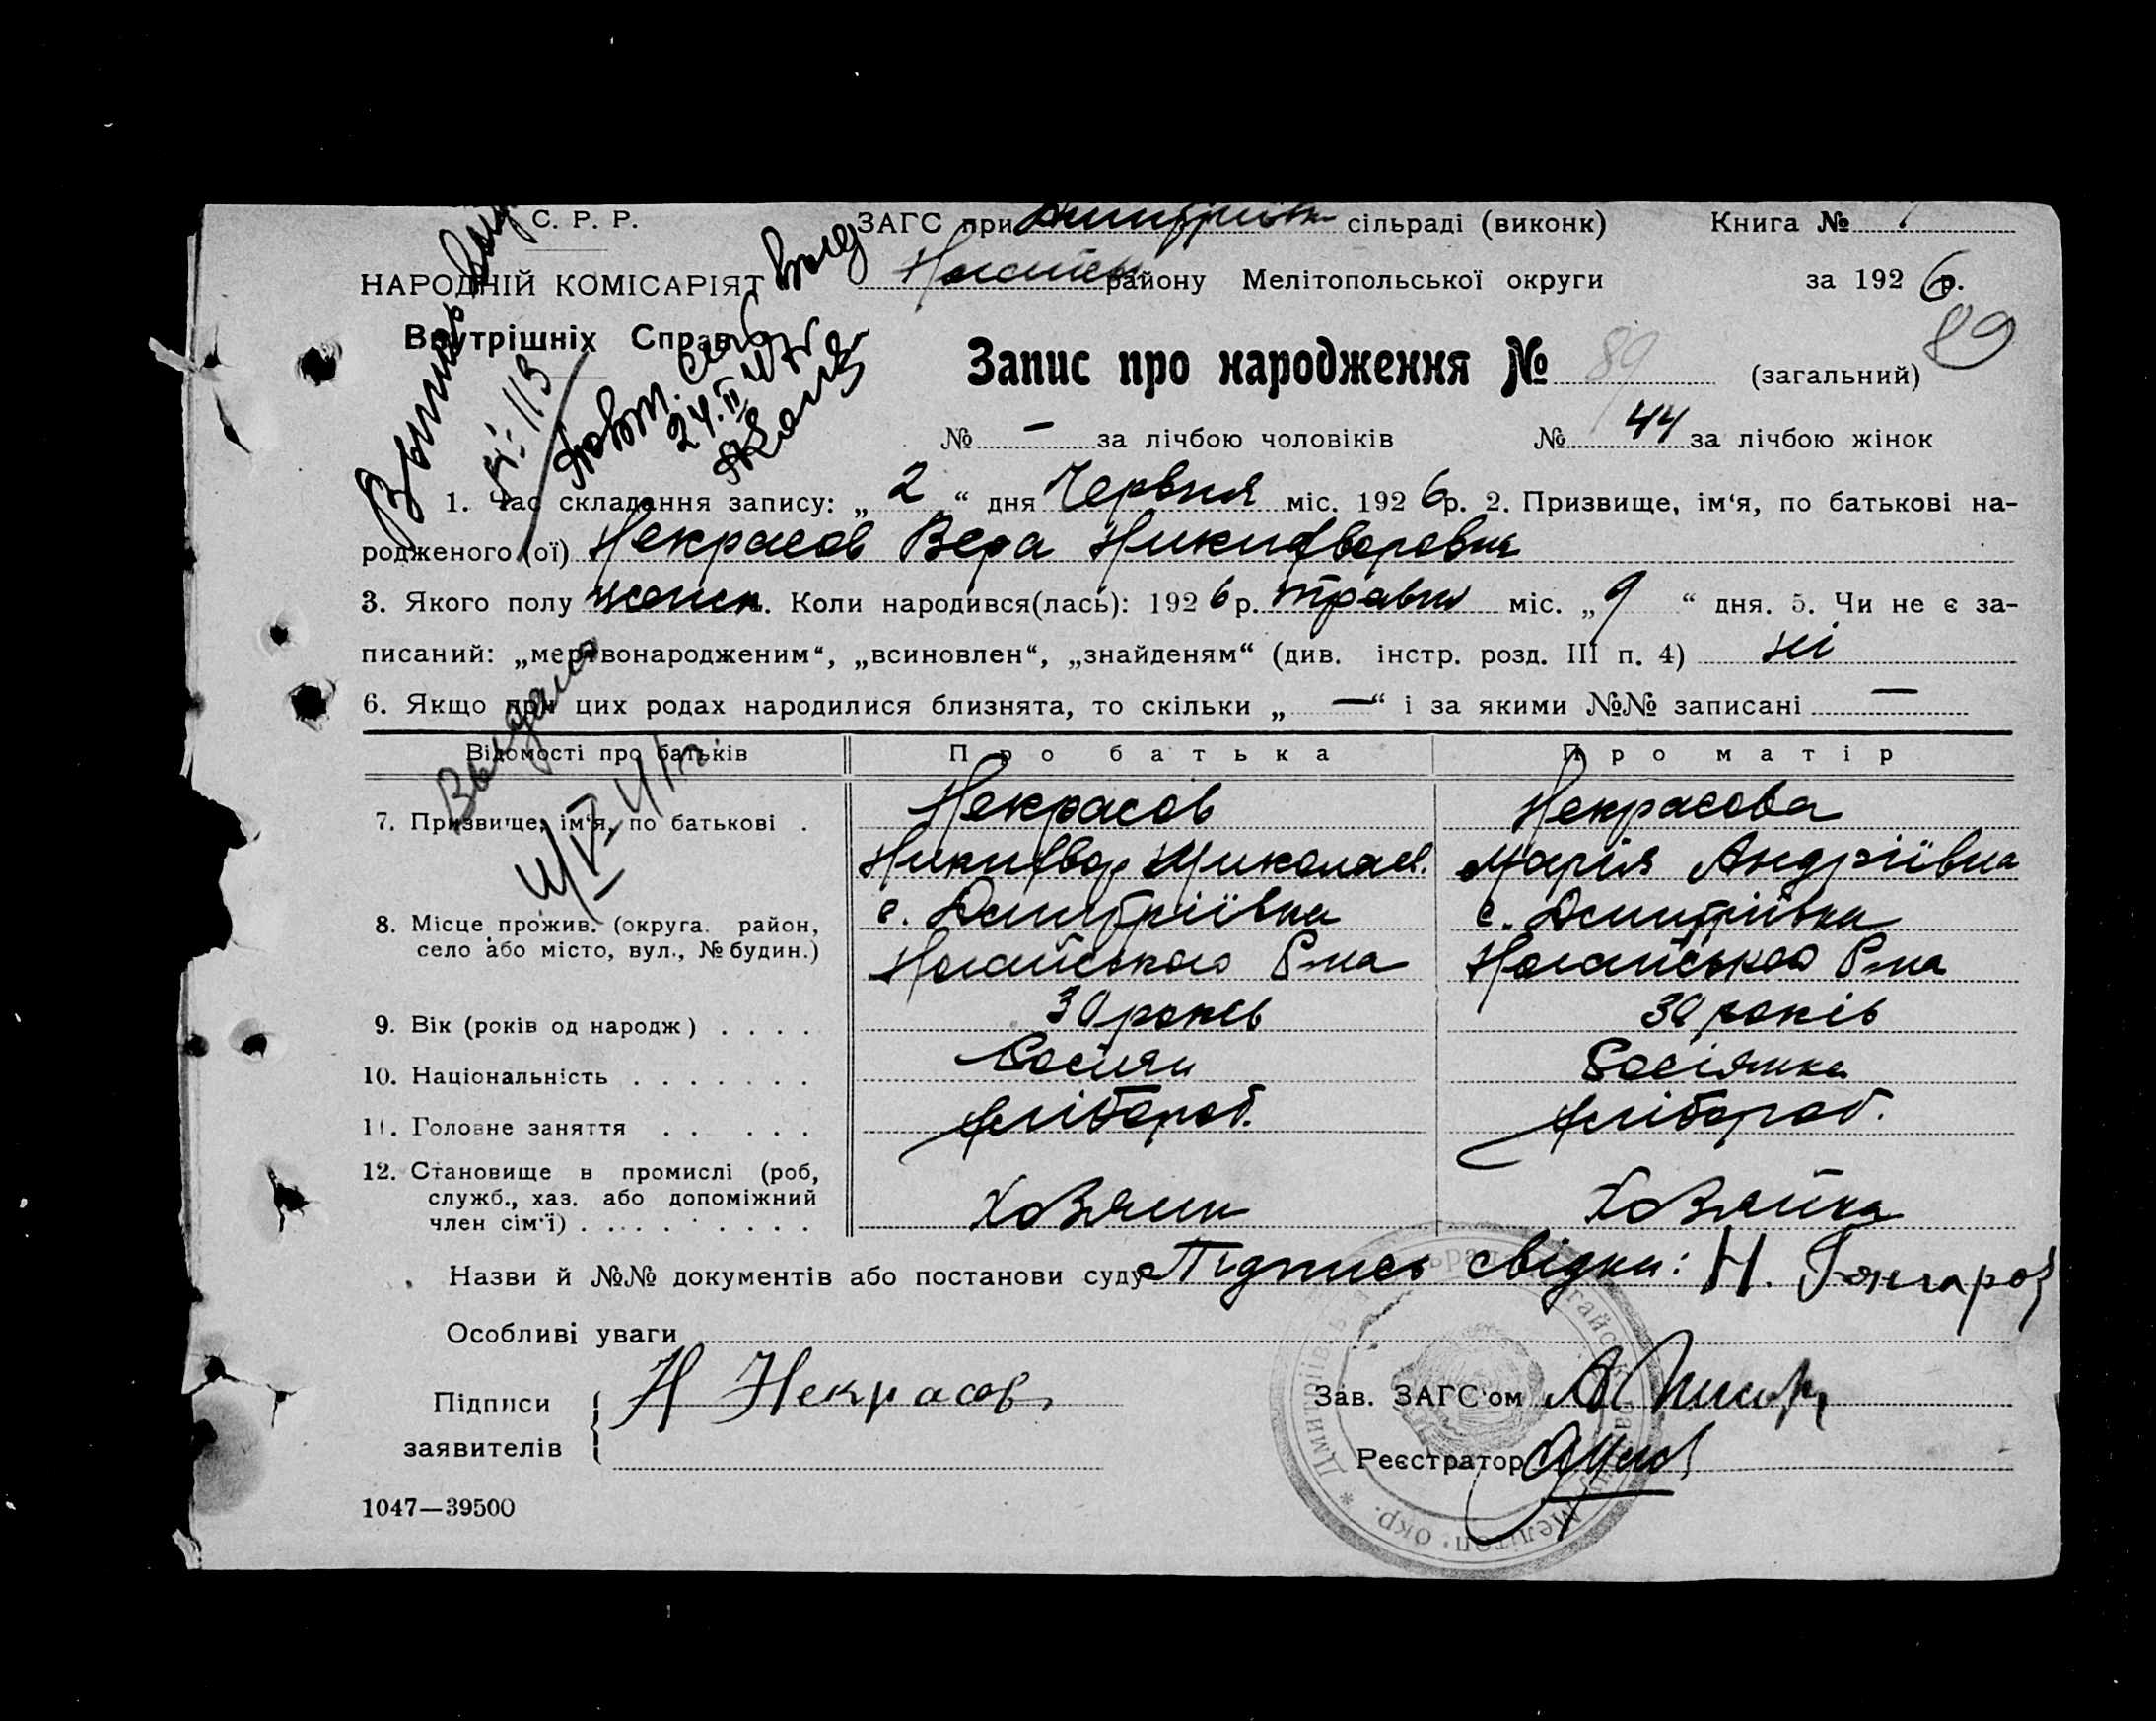 С. Р. Р.
ЗАГС при сільраді (виконк) Книга №
НАРОДНІЙ КОМІСАРІЯТ
району Мелітопольської округи за 1926 р.
Внутрішніх Справ
89
Запис про народження № 89 (загальний)
№ — за лічбою чоловіків № 44 за лічбою жінок
1. Час складання запису: „2“ дня Червня міс. 1926 р. 2. Призвище, ім‘я, по батькові на-
родженого (ої) Некрасов Вера Никифворовна
3. Якого полу. Коли народився(лась): 1926 р. травня міс. „9“ дня. 5. Чи не є за-
писаний: „мертвонародженим“, „всиновлен“, „знайденям“ (див. інстр. розд. III п. 4) ні
6. Якщо при цих родах народилися близнята, то скільки „—“ і за якими №№ записані —
Видано
Відомості про батьків Про батька Про матір
7. Призвище, ім‘я, по батькові . Некрасов Некрасова
Никифвор Николаев. Марія Андріївна
8. Місце прожив. (округа. район, с. Дмитріївка с. Дмитріївка
село або місто, вул., № будин.) Ногайського Р-на Ногайського Р-на
9. Вік (років од народж) . . . . 30 років 30 років
10. Національність . . . . . . . Росіян Росіянка
11. Головне заняття . . . . . хлібороб. хлібороб.
12. Становище в промислі (роб,
служб., хаз. або допоміжний Хозяин Хозяйка
член сім‘ї) . . . . . . . . . .
Назви й №№ документів або постанови суду Підпись свідка: Н. Гончаров
Особливі уваги
Підписи Н Некрасов
Зав. ЗАГС‘ом
заявителів
Реєстратор
Меліто. окр.
1047—39500